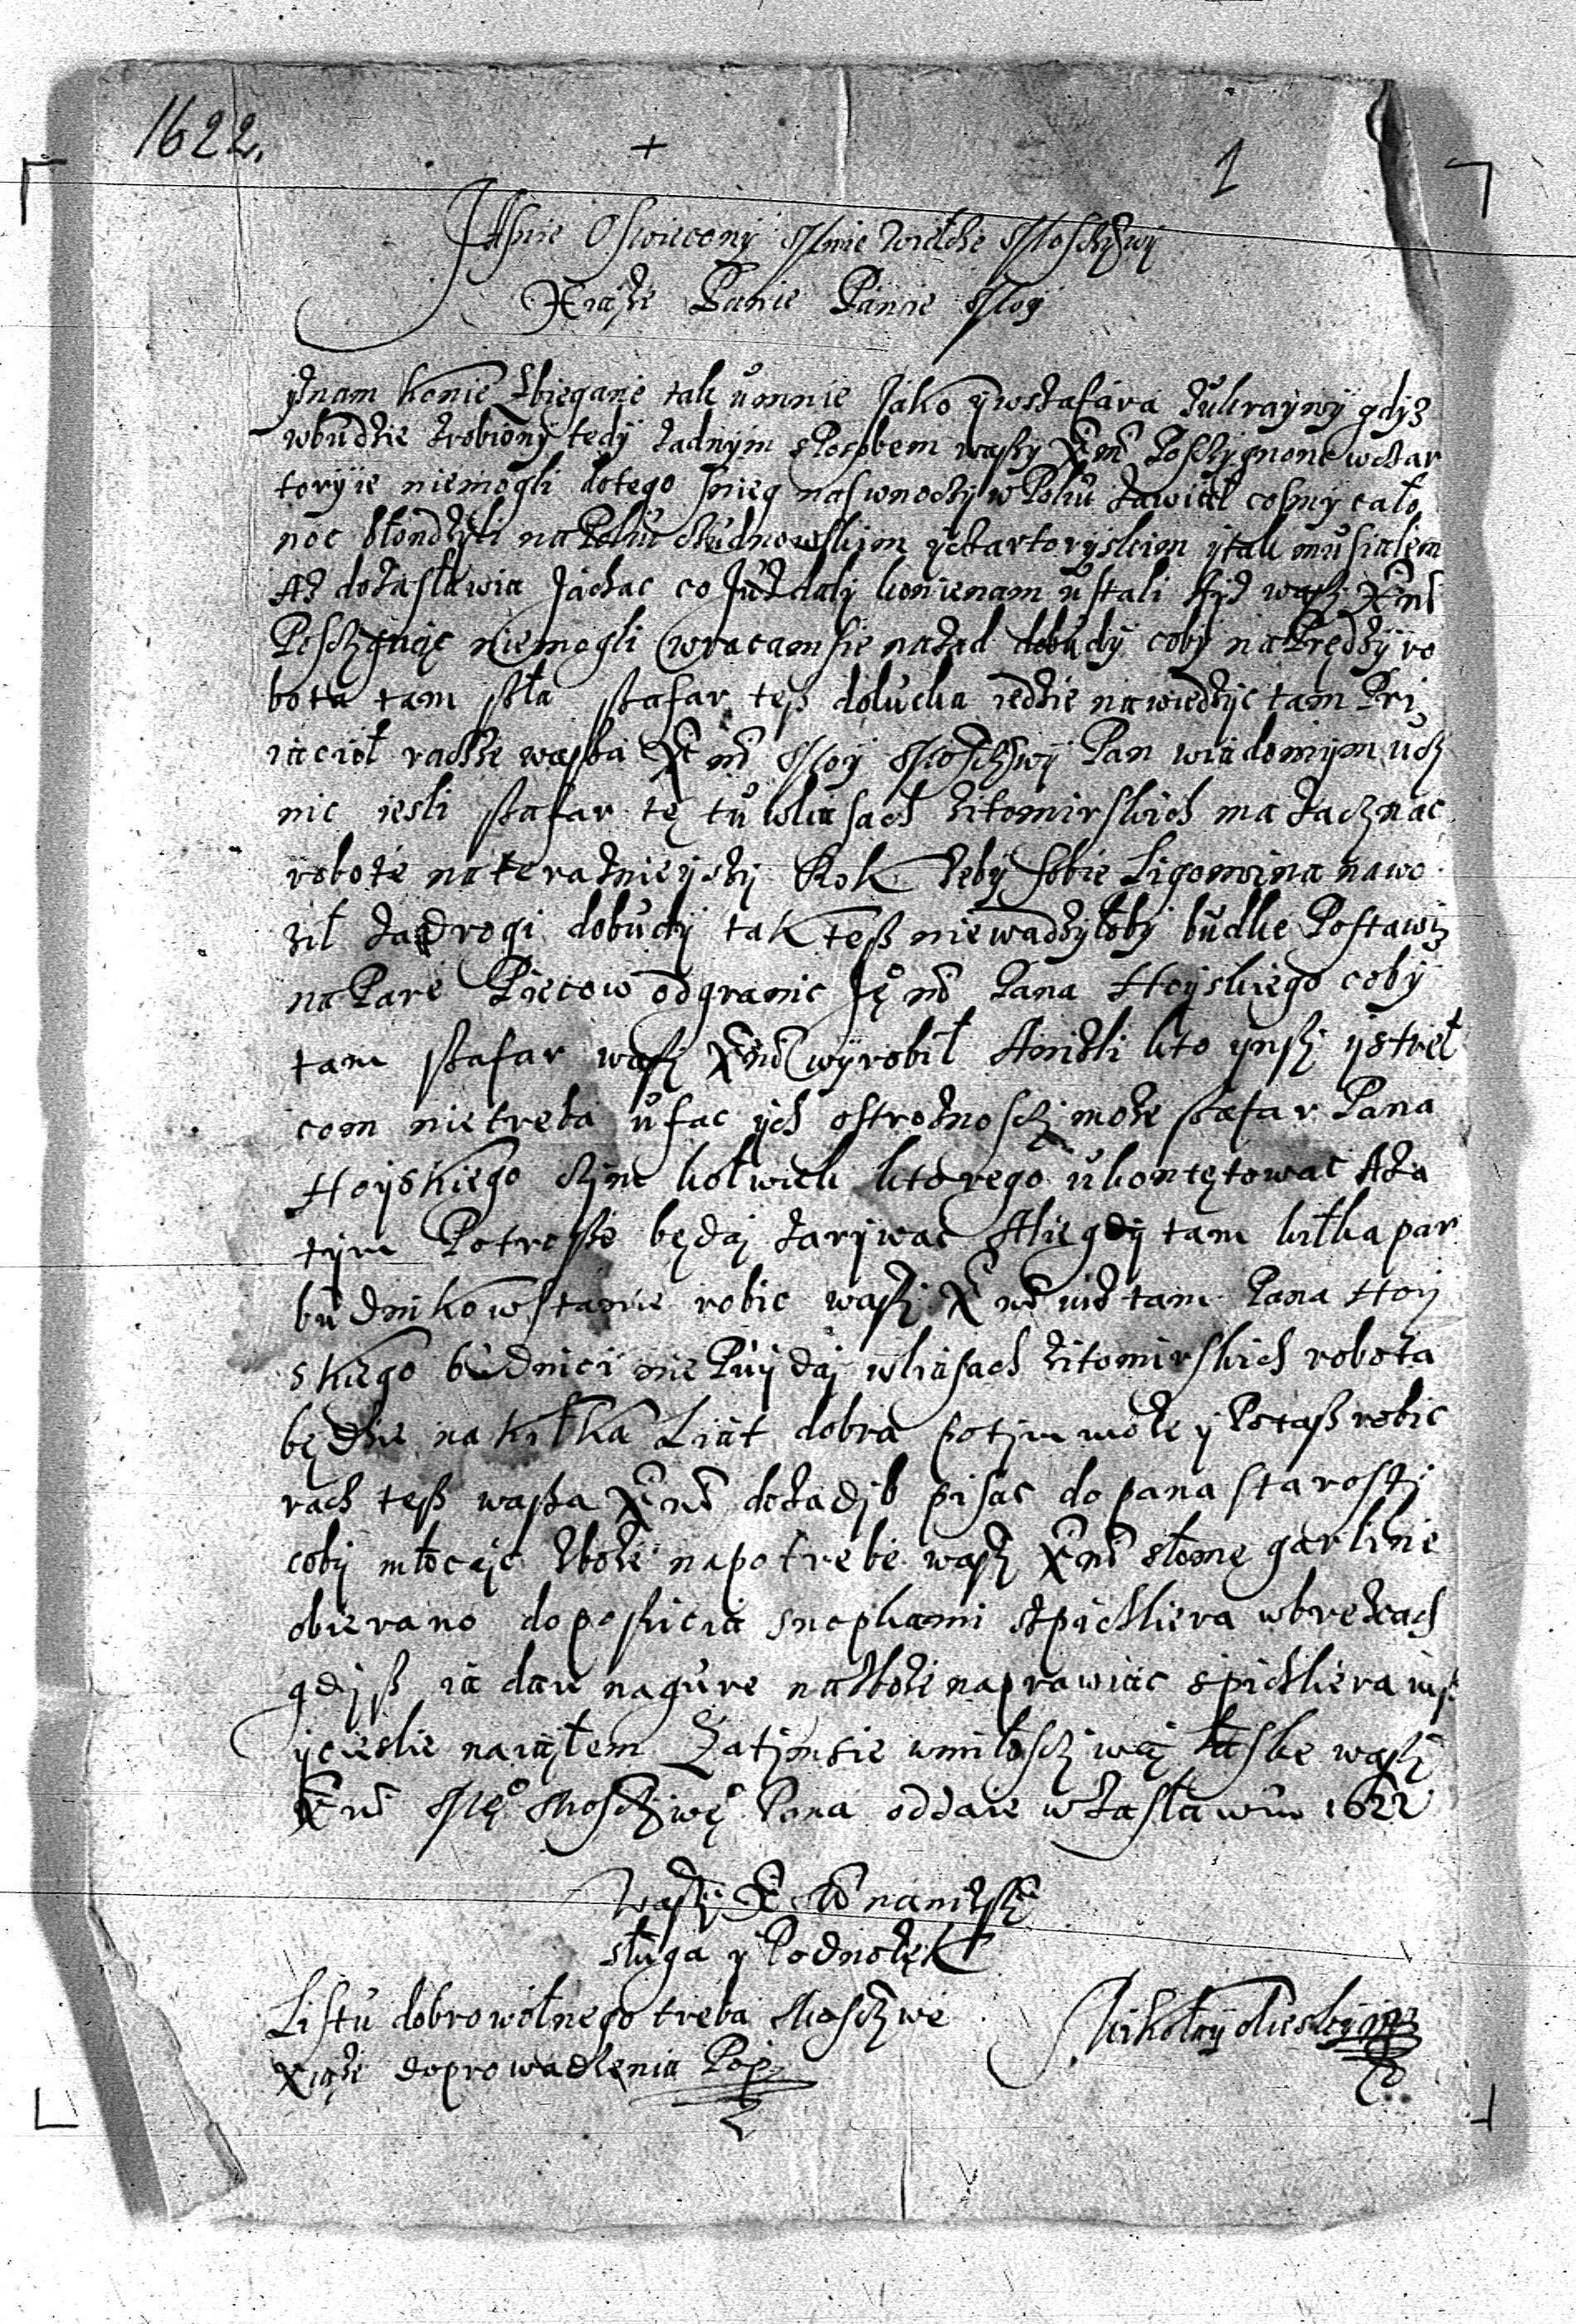 1622.
+
1
JAsnie Oswiecony Mnie Wielcze Mosciwy
Xiąże Panie Panie Moy
yznam konie Zbiegane tak u mnie Jako y wszafara zukrayny gdyz
wbudzie zrobiony tedy zadnym sposobem waszy X mci Posczignonc wczar
toryie niemogli dotego snieg nas wnoczy w Polu zawiał cosmy cało
noc błondzyli na Polu cżudnowskim yczartoryskim ytak musiałem
Az dozasławia Jachac co Juz daly konienam ustali gyz waszy X mci
Poscżgnąc niemogli wracamsie nazad dobudy coby naPrędzy ro
bota tam szła szafar tesz dolucka iedzie nawiedzyc tam Pri
iacioł raczże wasza X mc Moy Mosciwy Pan wiadomym ucż
nic iesli szafar tę tu wliasach żitomirskich ma zacżnac
robote na terażnieyszy Rok żeby sobie Ligomina nawo
żił zadrogi dobudy tak tesz niewadzyłoby budke Postawiz
na Pare Piecow odgranic Ję mci Pana Hoyskiego coby
tam szafar waszy X mci wyrobił Anizli kto ynszy ystrel
com nietreba ufac ych ostrożnosczy może szafar Pana
Hoyskiego czym kolwiek ktorego ukontętowac Aza
tym Potroße będaj zarywac Alie gdy tam kilka par
budnikow stanie robic waszy X mci iuż tam Pana Hoy
skiego budnici nie Puydaj wliasach żitomirskich robota
będzie na kilka Liat dobra potym może y Potasz robic
racż tesz wasza X mc dozadyb pisac do pana starosty
coby młocąc zboże napotrebe waszy X mci słome garlinie
obierano doposzicia snopkami szpichliera wbrezcach
gdysz ia dau nagure na zboże naprawiac spichliera
ycieslie naiąłem Zatymsie wmiłosczywą łaske waszy
X mci Mę Mosczywę Pana oddaie wzasławiu 1622
Waszy X Mci naniższy
sługa y Podnożek
Listu dobrowolnego treba Mosczywe
Xiąże doprowadzenia Popi
Mikołay